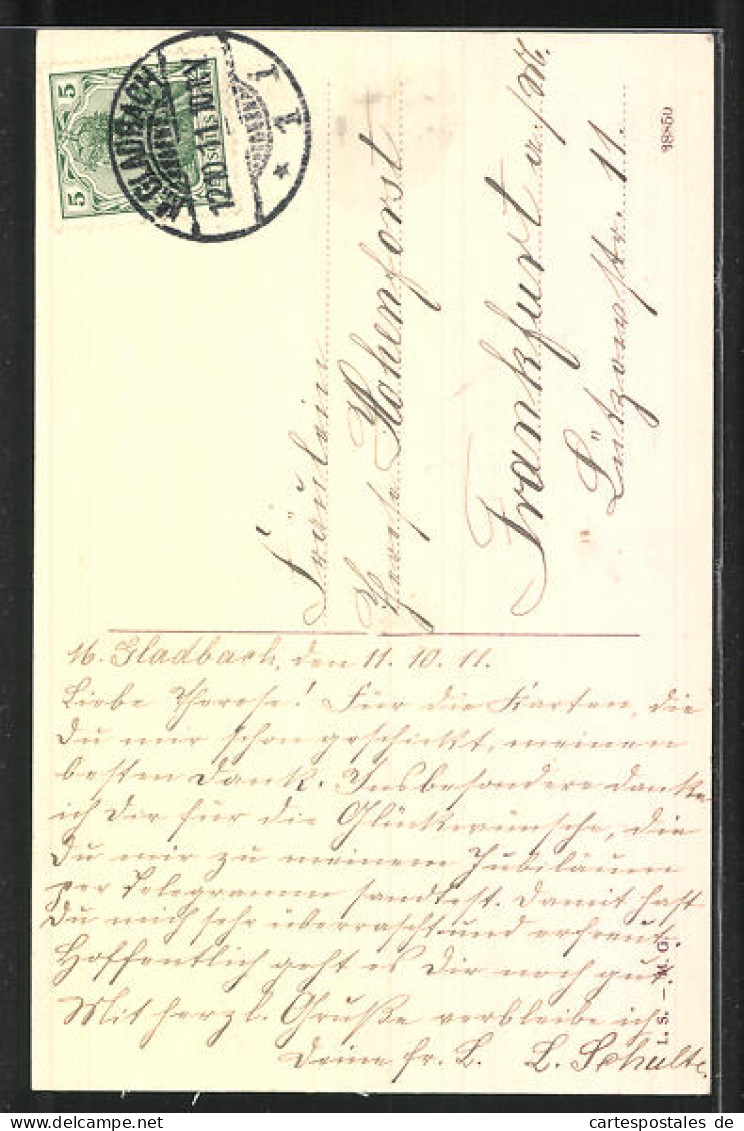 5
5
M. GLADBACH
12.10.11. 10-11V.
1
Fräulein
Theres. Hohenforst
Frankfurt a/M.
Lützowstr. 11.
M. Gladbach, den 11. 10. 11.
Liebe Therese! Für die Karten, die
Du mir schon geschickt, meinen
besten Dank. Insbesondere danke
ich Dir für die Glückwünsche, die
Du mir zu meinem Jubiläum
per Telegramm sandtest. Damit hast
Du mich sehr überrascht und erfreut.
Hoffentlich geht es Dir noch gut.
Mit herzl. Gruße verbleibe ich
Deine fr. L. L. Schulte.
L. S. — M. G.
cartespostales.de